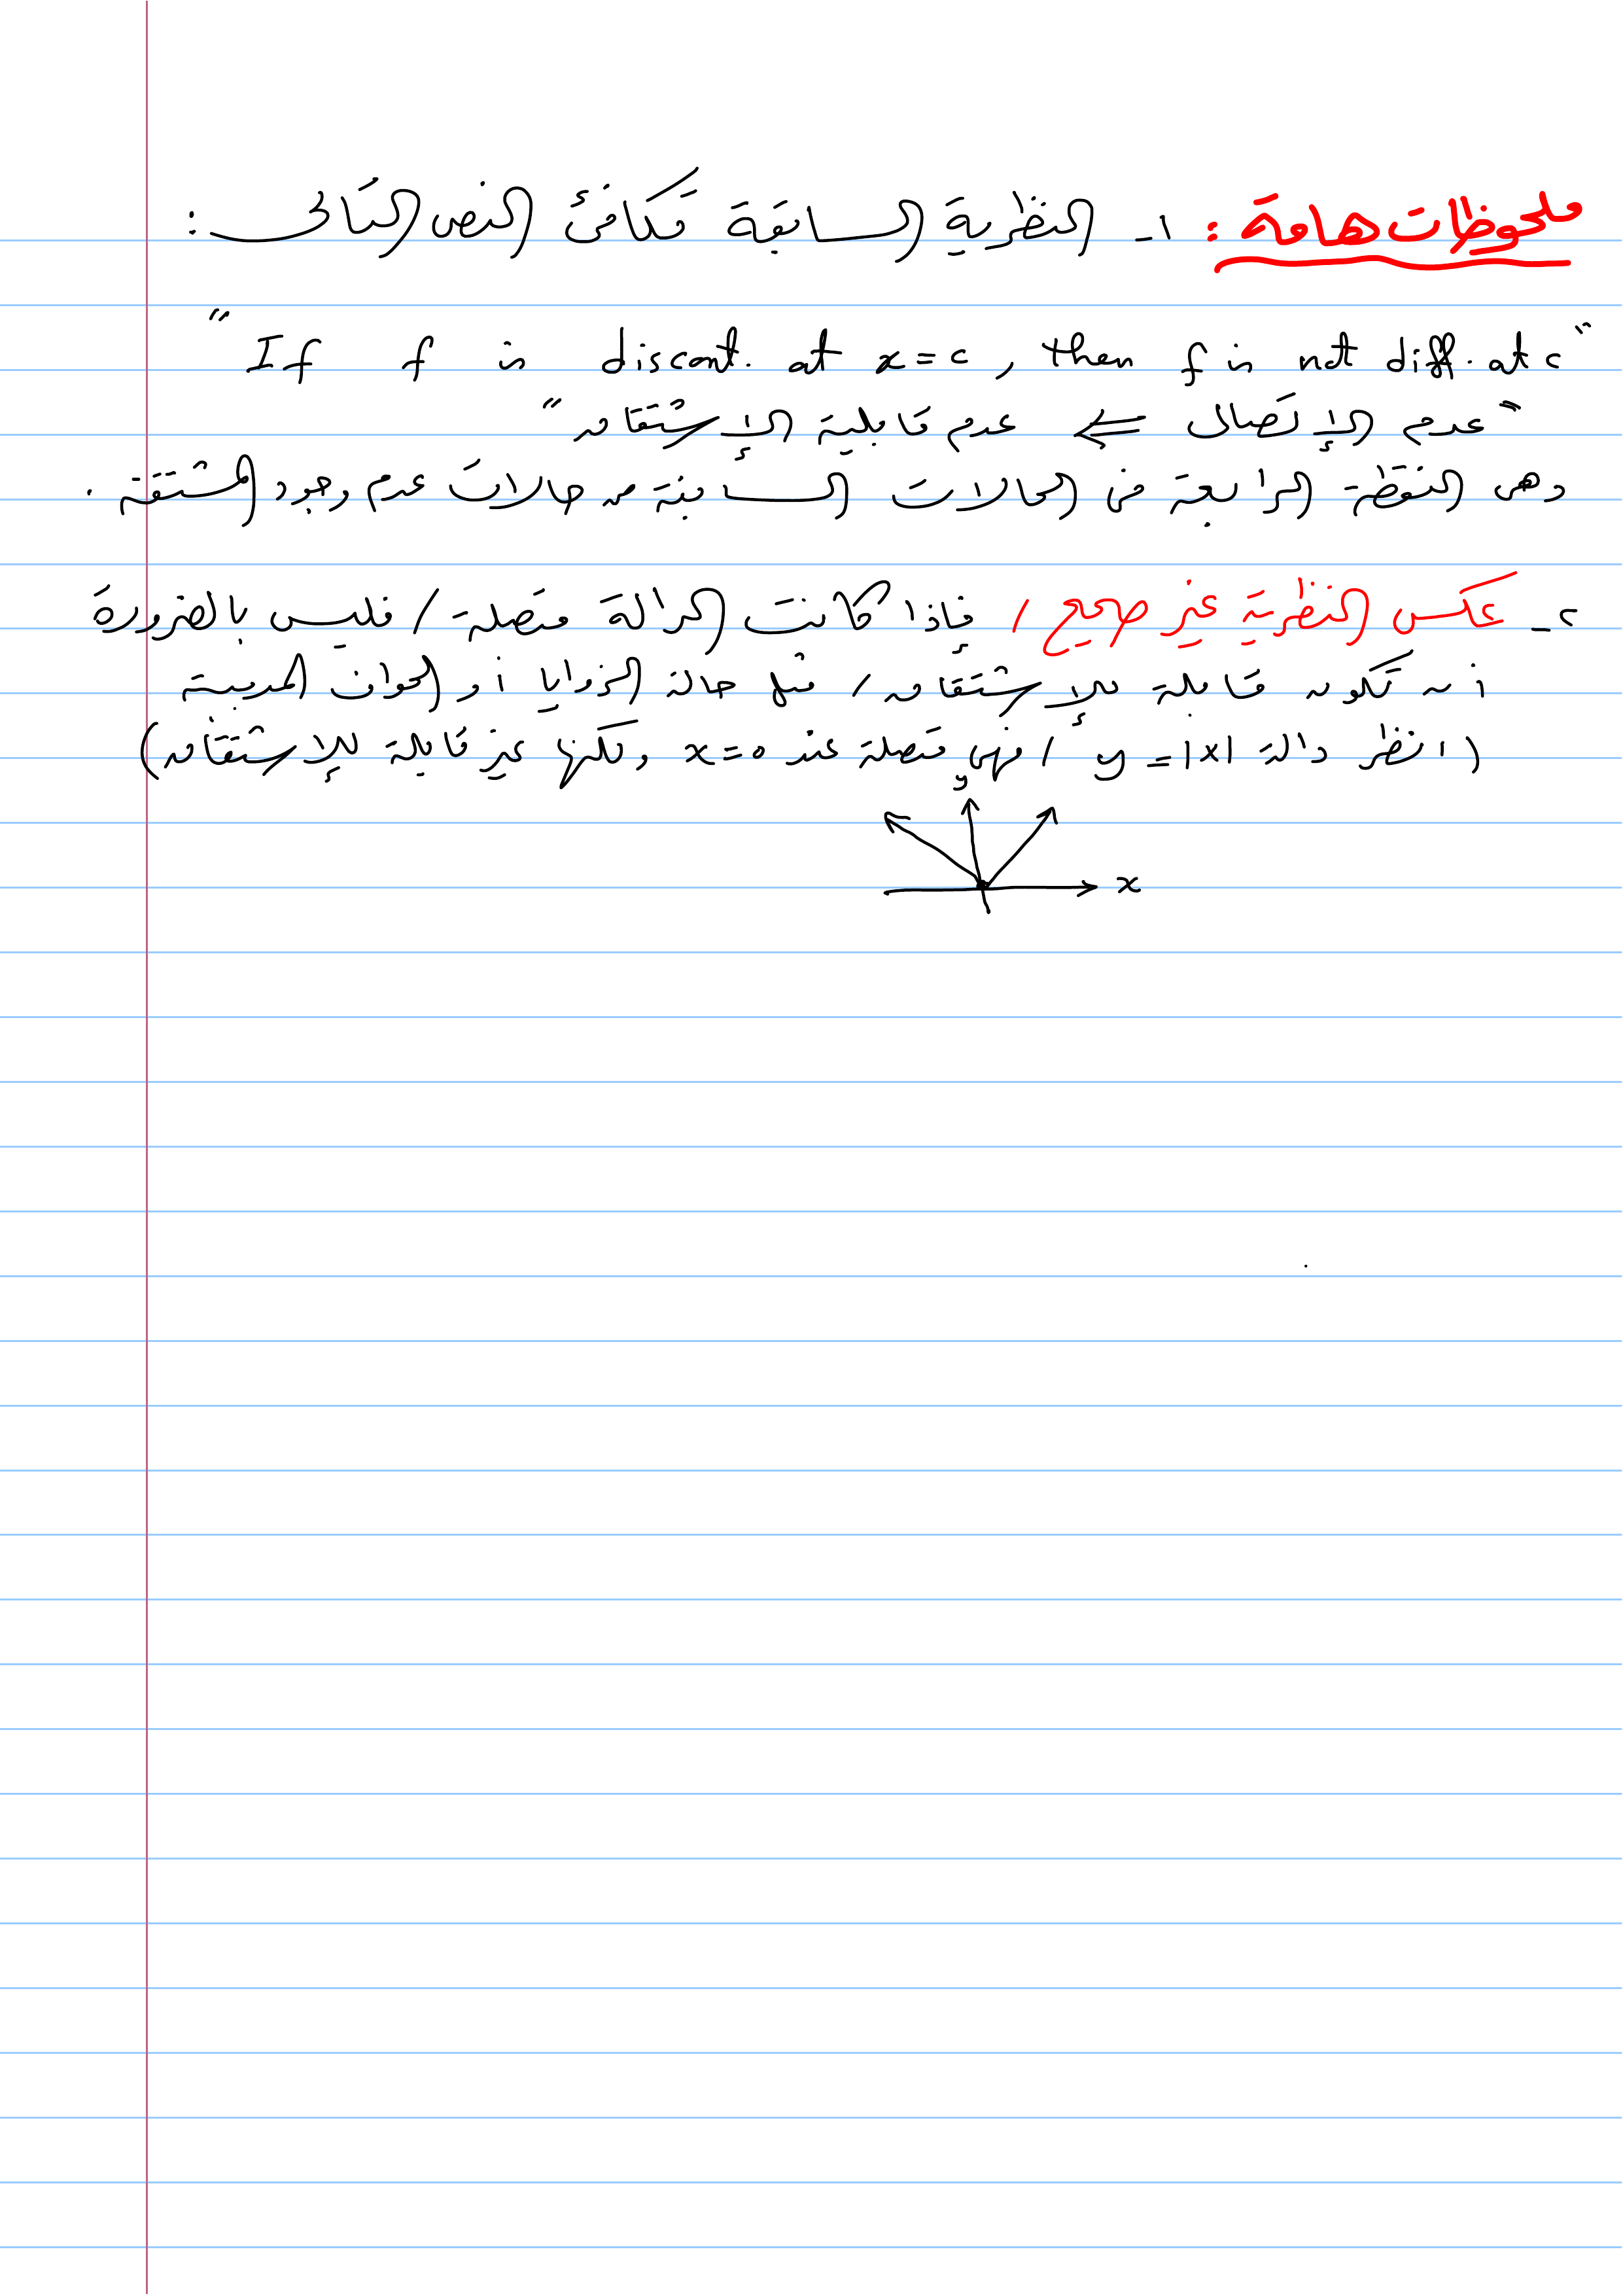 ملحوظات هامة : ١- النظرية السابقة تكافئ النص التالى :
"If f is discont. at x = c , then f is not diff. at c"
"عدم الإتصال ⇐ عدم قابلية الإشتقاق"
وهى النقطة الرابعة فى الحالات السابقة من حالات عدم وجود المشتقة .
٢- عكس النظرية غير صحيح / فإذا كانت الدالة متصلة / فليس بالضرورة
أن تكون قابلة للإشتقاق / مثل حالة الزوايا أو الحواف المدببة
(انظر دالة y = |x| / فهى متصلة عند x = 0 ولكنها غير قابلة للإشتقاق)
x